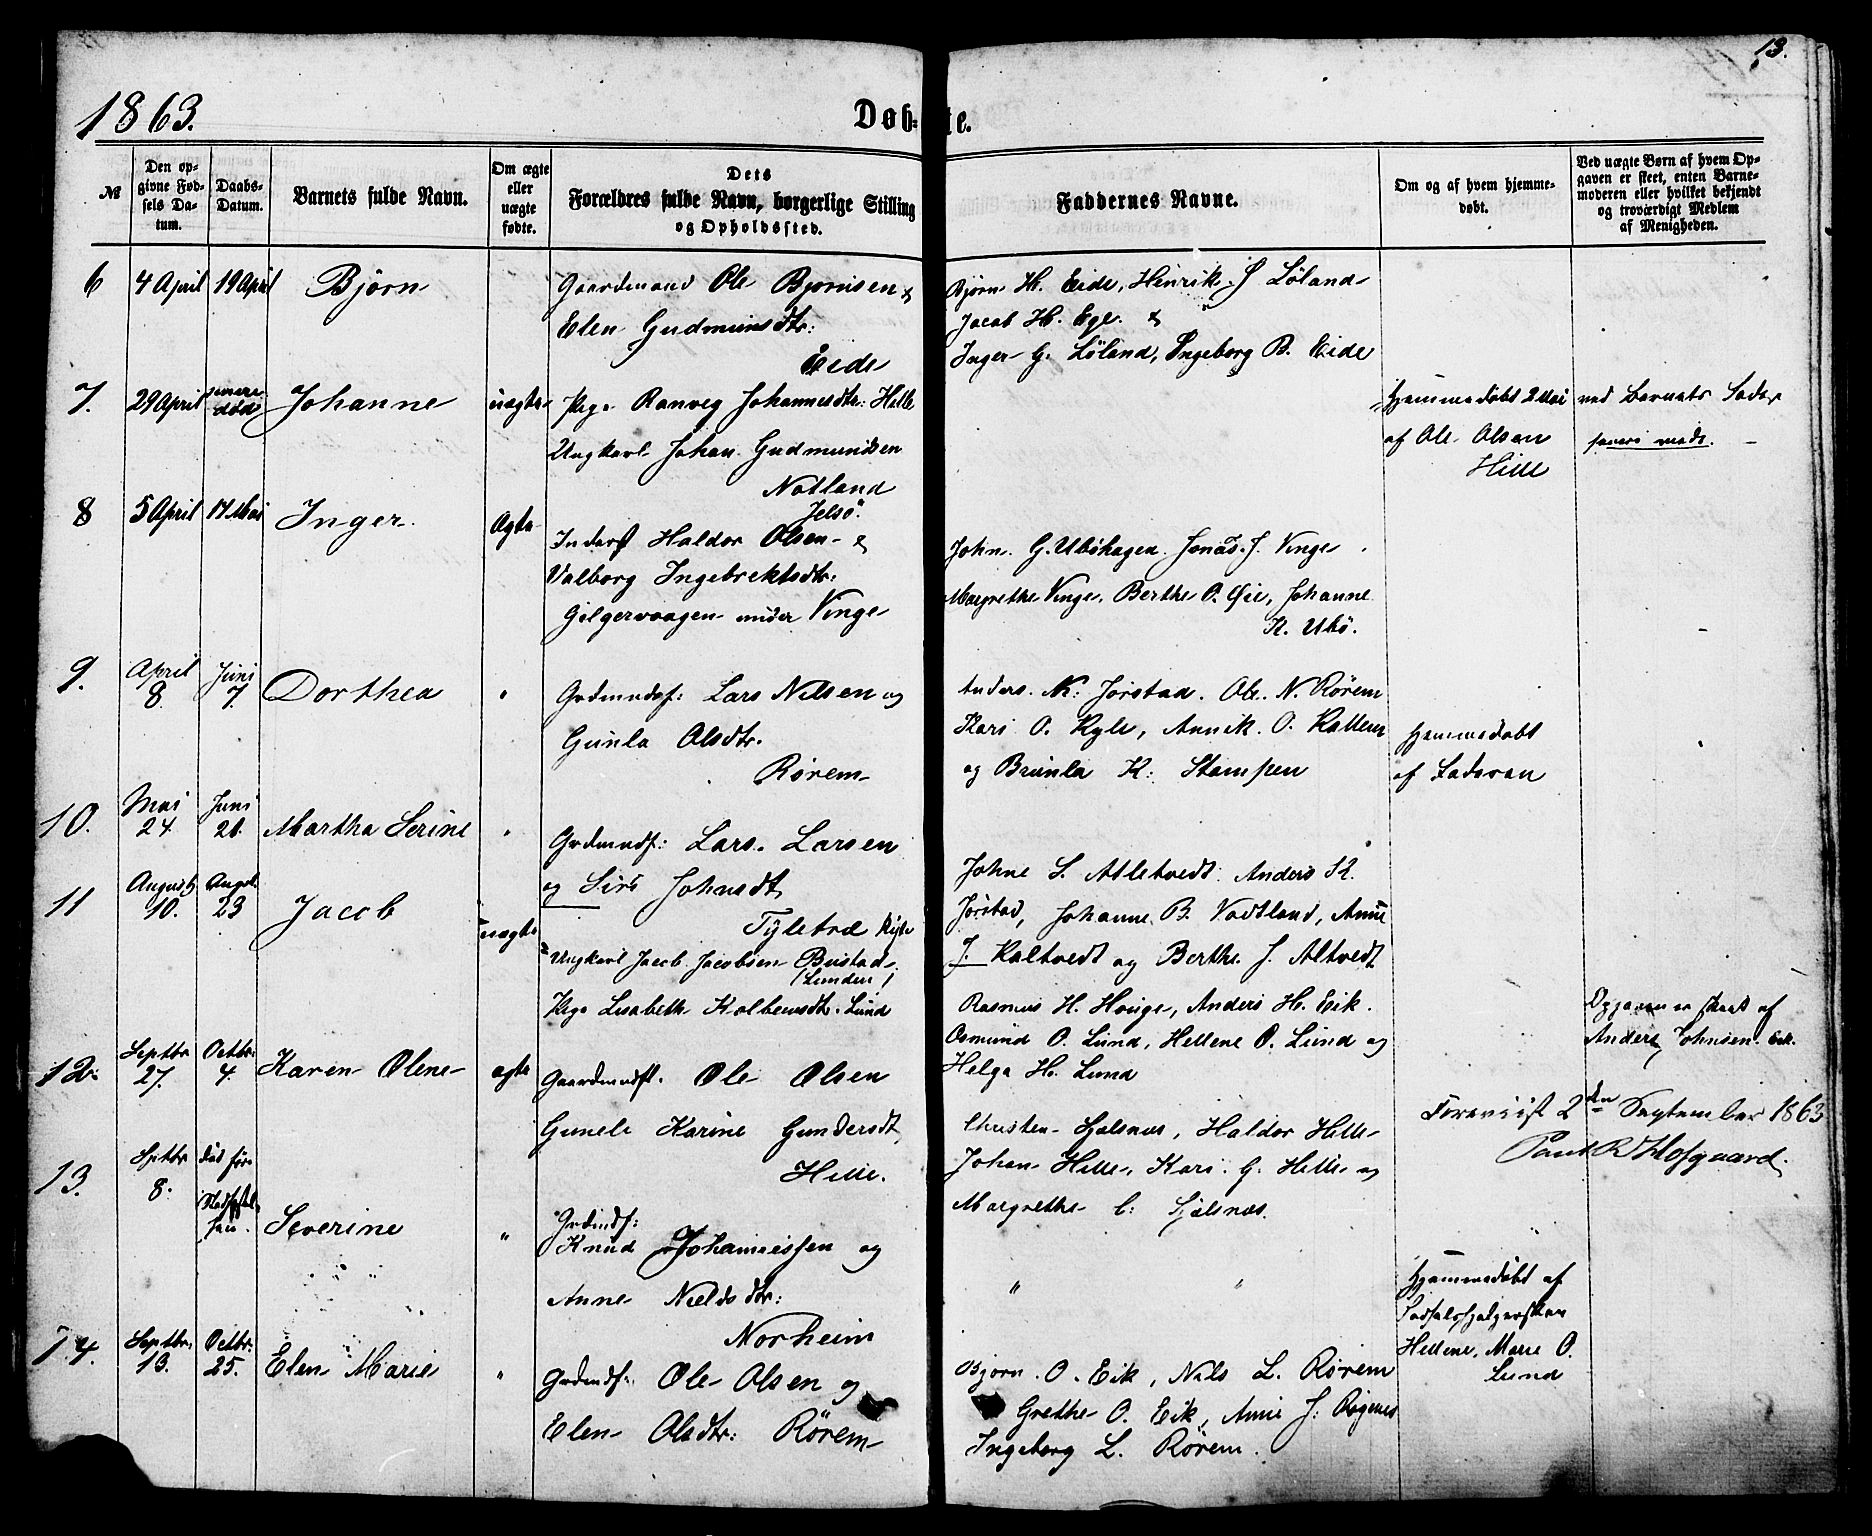 13.
1863.
Døb-
te.
№
Den op-
givne Fød-
sels Da-
tum.
Daabs-
Datum.
Barnets fulde Navn.
Om ægte
eller
uægte
fødte.
Dets
Forældres fulde Navn, borgerlige Stilling
og Opholdssted.
Faddernes Navne.
Om og af hvem hjemme-
døbt.
Ved uægte Børn af hvem Op-
gaven er skeet, enten Barne-
moderen eller hvilket bekjendt
og troværdigt Medlem
af Menigheden.
6
4 April
19 April
Bjørn
Gaardmand Ole Bjørnsen &
Elen Gudmundsdtr:
Eide
Bjørn H. Eide, Henrik J Løland
Jacob H. Ege. &
Inger G. Løland, Ingeborg B. Eide
7.
29 April
død
Johanne
uægte
Pige Ranveg Johannesdtr: Hille
Ungkarl Johan Gudmundsen
Natland
Jelsø.
Hjemmedøbt 2 Mai
af Ole Olsen
Hille
ved Barnets
8
5 April
17 Mai
Inger
Ægte
Inderst Haldor Olsen &
Valborg Ingebrektsdtr:
Gilgervaagen under Vinge
John G. Ubøhagen Jonas J. Vinge
Margrethe Vinge, Berthe O. Øie, Johanne
K. Ubø.
9.
April
8.
Juni
7.
Dorthea
"
Grdmndsf: Lars Nilsen og
Gunla Olsdtr.
Rørem
Anders N: Jørstad. Ole N. Rørem
Kari O. Kyle, Annik O.
og Brunla K: Stampen
Hjemmedøbt
af Faderen
10.
Mai
24.
Juni
21.
Martha Serine
"
Grdmndf: Lars Larsen
og Siri Johnsdt
Tyletræ
Johne S. Alletvedt Anders K.
Jørstad, Johanne B. Vadtland, Anne
J. Kaltvedt og Berthe J. Altvedt
11
August
10.
August
23
Jacob
uægte
Ungkarl Jacob Jacobsen Bustad
(Lunden)
Pige Lisabeth Kolbensdtr. Lund
Rasmus H. Houge, Anders H. Eik.
Osmund O. Lund, Hellene O. Lund og
Helga H. Lund
Opgaven er skeet af
Anders Johnsen Eik.
12.
Septbr
27.
Octbr:
4.
Karen Olene
ægte
Gaardmndsf. Ole Olsen
Gunele Karine Gundersdt
Hille.
Christen Hjelsnæs, Haldor Hille
Johan Hille, Kari G. Hille og
Margrethe C: Hjelsnæs.
Foreviist 2den September 1863
Paul R Hofgaard.
13.
Septbr
8.
død før
Severine
"
Grdmdf:
Knud Johannessen og
Anne Nielsdtr:
Norheim
"
"
Hjemmedøbt af
Fødselshjelpersken
Hellene Marie O.
Lund
14.
Septbr.
13.
Octbr:
25.
Elen Marie
"
Grdmdf: Ole Olsen og
Elen Olsdtr: Rörem
Bjørn O. Eik, Nils L. Rörem
Grethe O. Eik, Anne J: Røgenes
Ingeborg L. Rörem.